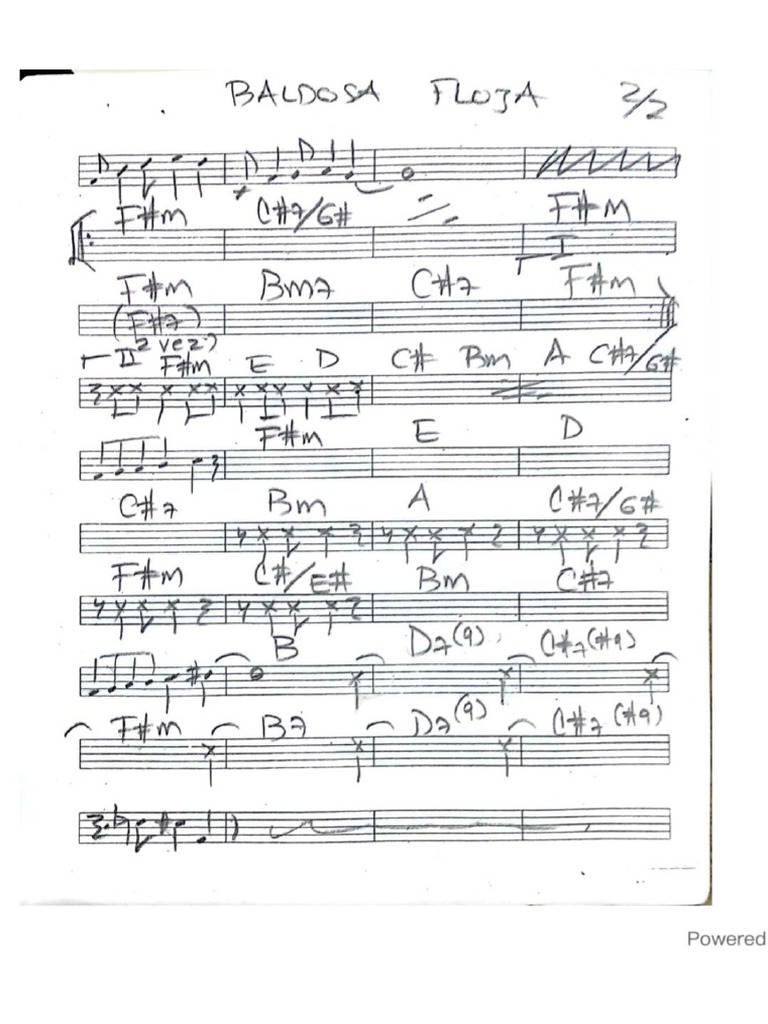 BALDOSA FLOJA 2/2
F#m C#7/G# F#m
I
F#m Bm7 C#7 F#m
(F#7)
II 2 vez.) F#m E D C# Bm A C#7/G#
F#m E D
C#7 Bm A C#7/G#
F#m C#/E# Bm C#7
B D7(9) C#7(#9)
F#m B7 D7(9) C#7(#9)
Powered